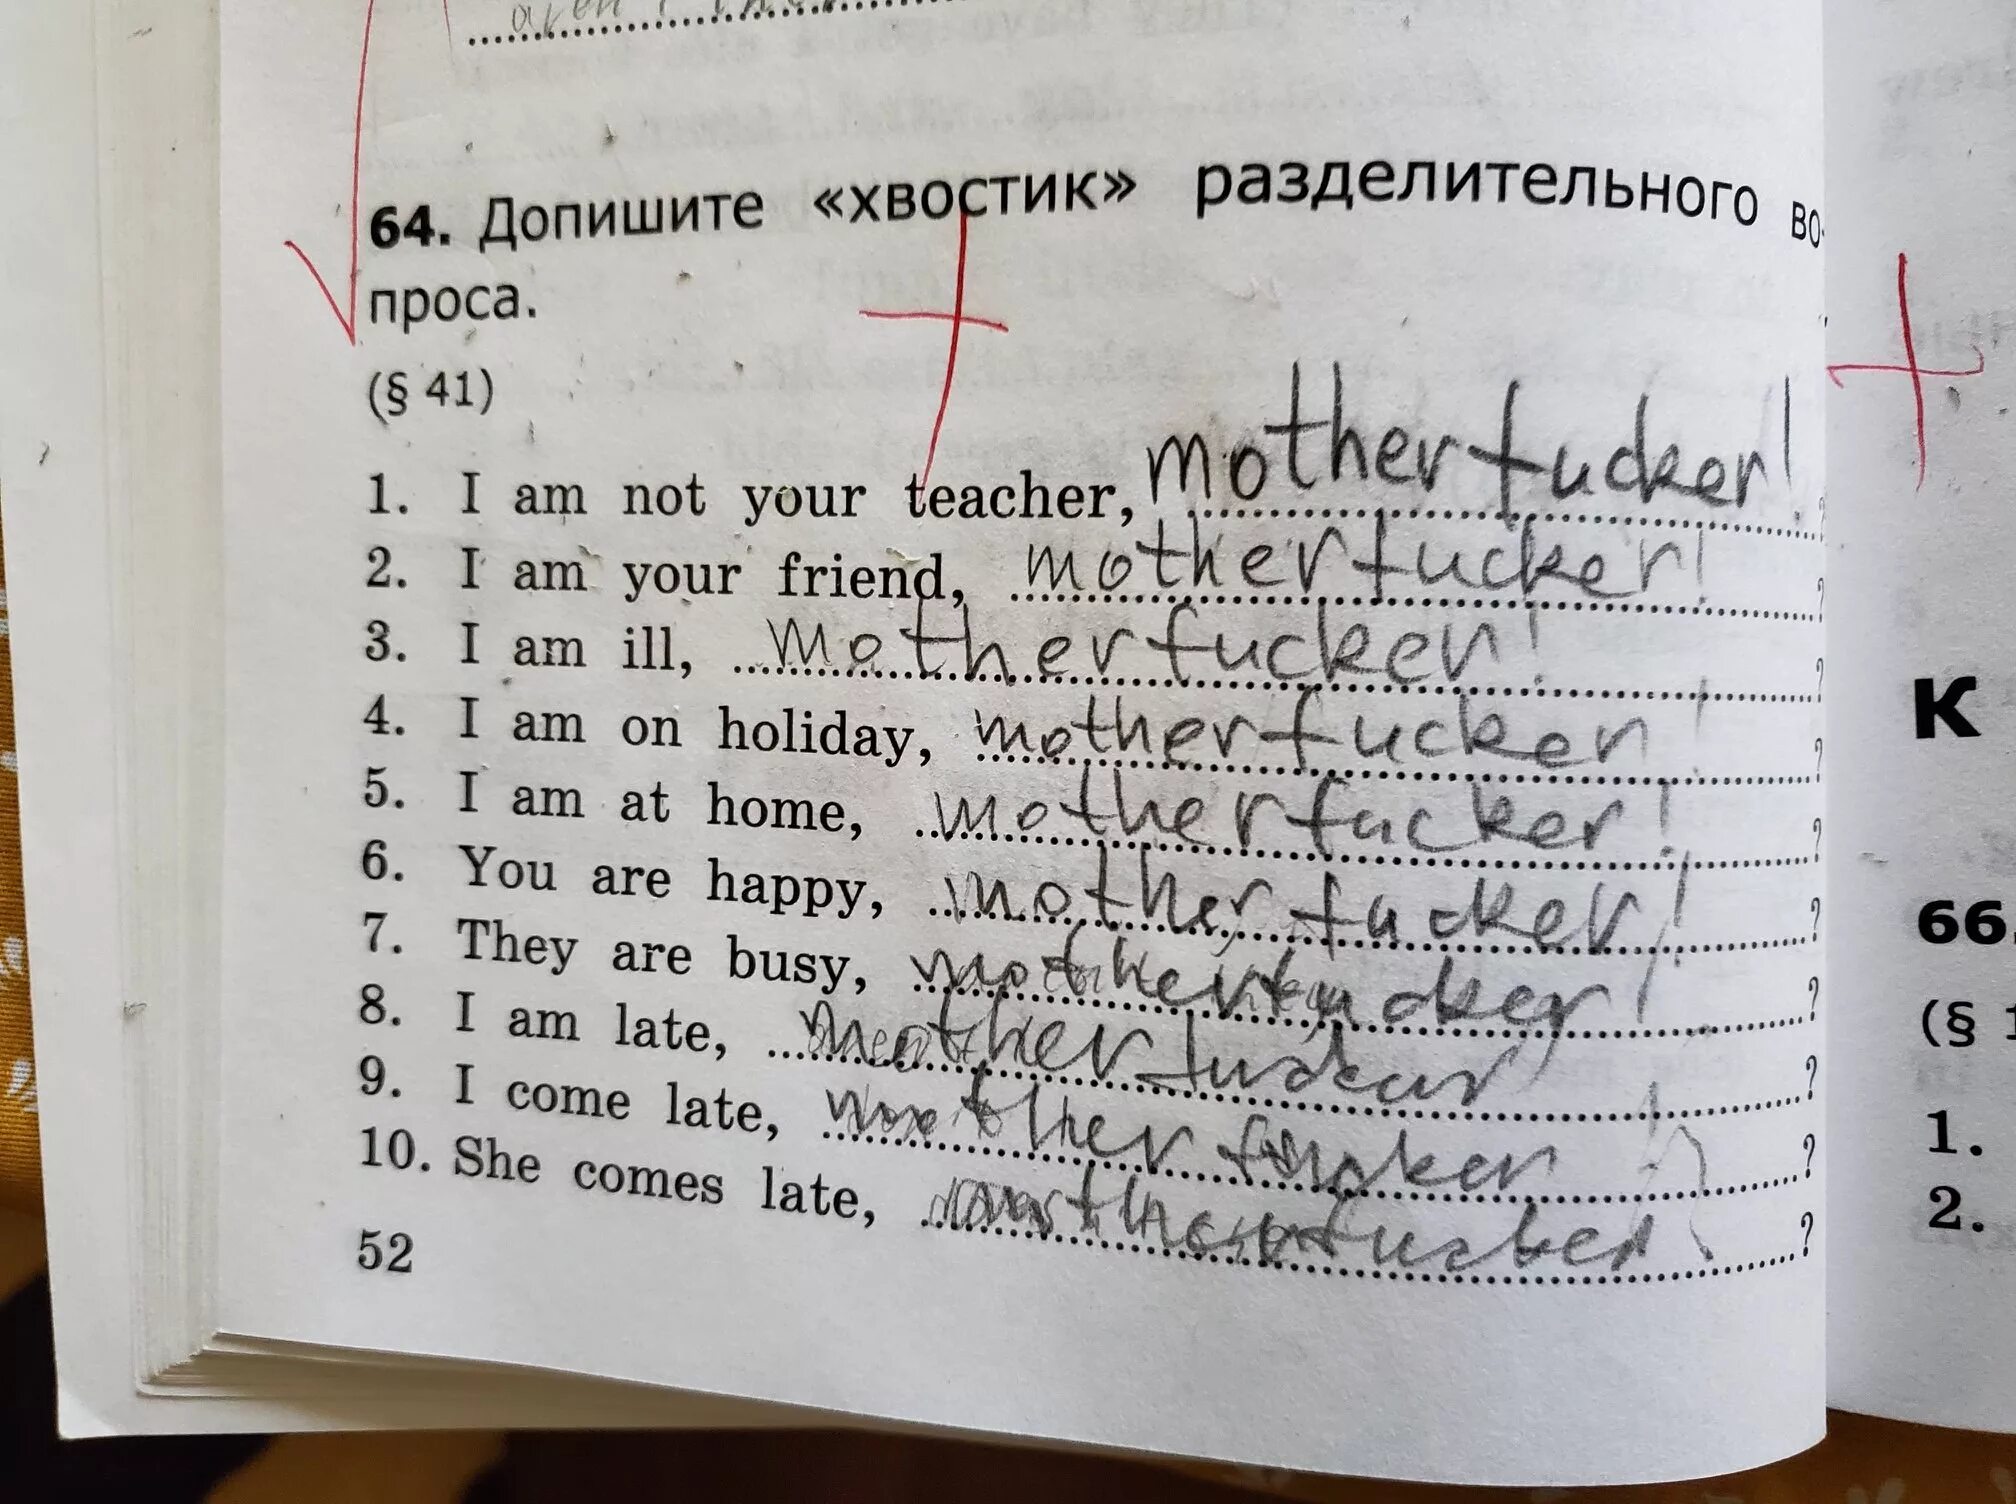 64. Допишите «хвостик» разделительного во-
проса.
(§ 41)
1. I am not your teacher, motherfucker! ?
2. I am your friend, motherfucker! ?
3. I am ill, motherfucker! ?
4. I am on holiday, motherfucker! ?
5. I am at home, motherfucker! ?
6. You are happy, motherfucker! ?
7. They are busy, motherfucker! ?
8. I am late, motherfucker! ?
9. I come late, motherfucker! ?
10. She comes late, motherfucker! ?
52
К
66.
(§ 1
1.
2.